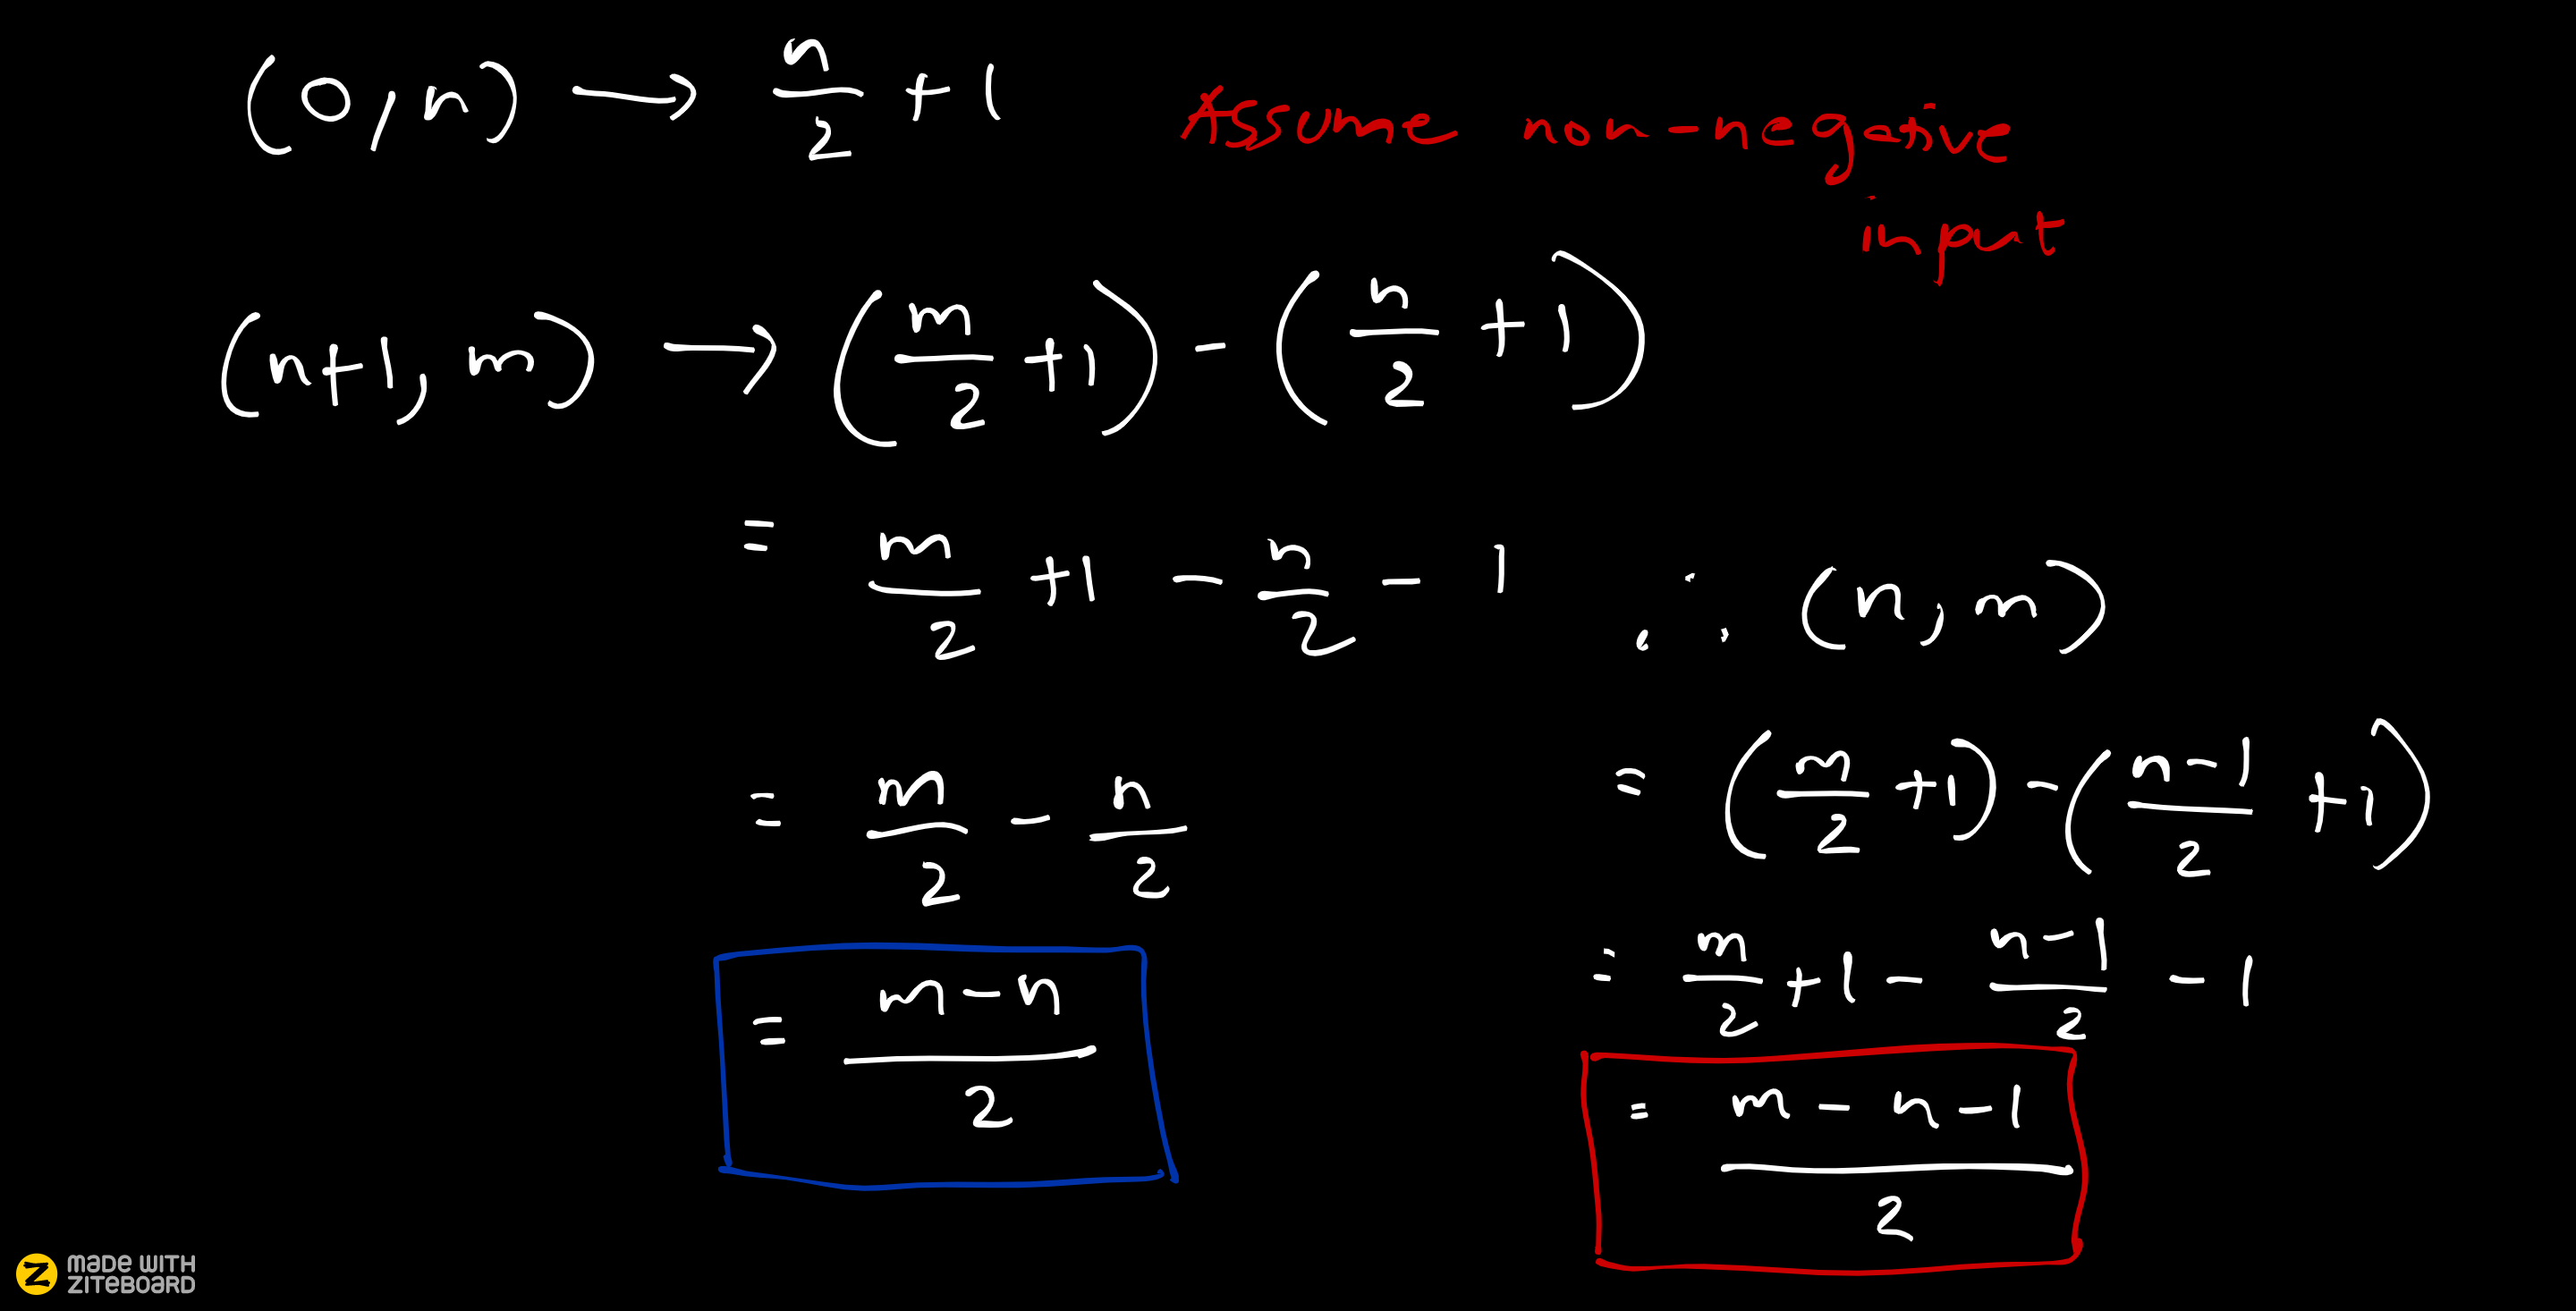 (0,n) → n/2 + 1
Assume non-negative
input
(n+1, m) → (m/2 + 1) - (n/2 + 1)
= m/2 + 1 - n/2 - 1
= m/2 - n/2
= (m-n)/2
∴ (n, m)
= (m/2 + 1) - ((n-1)/2 + 1)
= m/2 + 1 - (n-1)/2 - 1
= (m-n-1)/2
MADE WITH
ZITEBOARD